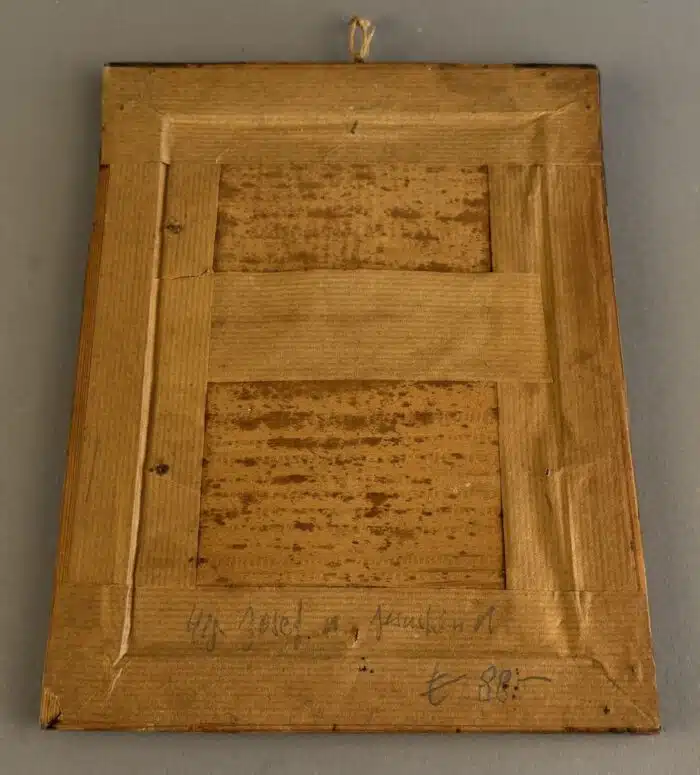 Hg. Josef u. Jesuskind
€ 88.-